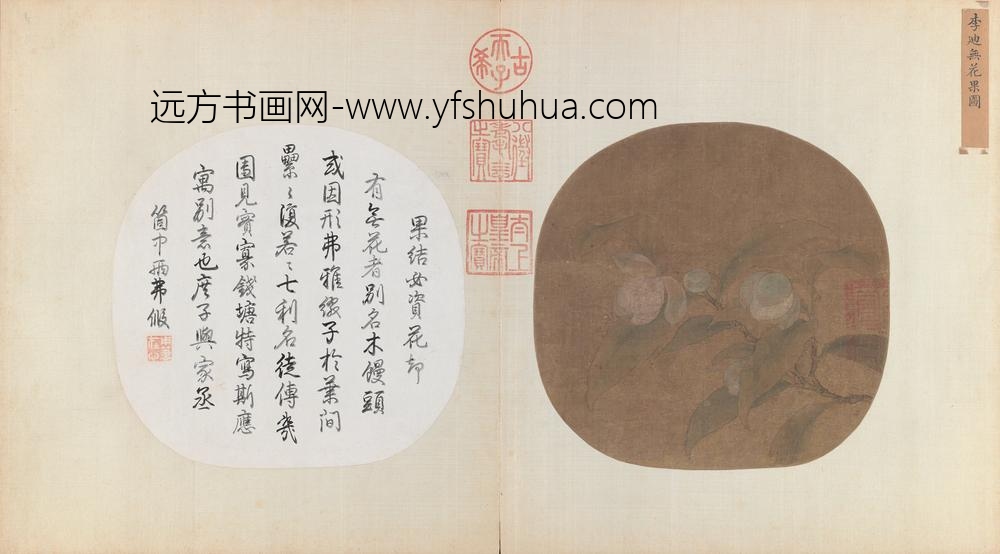 李迪無花果圖
古
希
天子
八徵
耄念
之寶
太上
皇帝
之寶
远方书画网-www.yfshuhua.com
果結必資花却
有無花者別名木饅頭
或因形弗雅綴子於葉間
纍〻復若〻七利名徒傳幾
圃見實寡錢塘特寫斯應
寓別意也庶子與家丞
箇中兩弗假